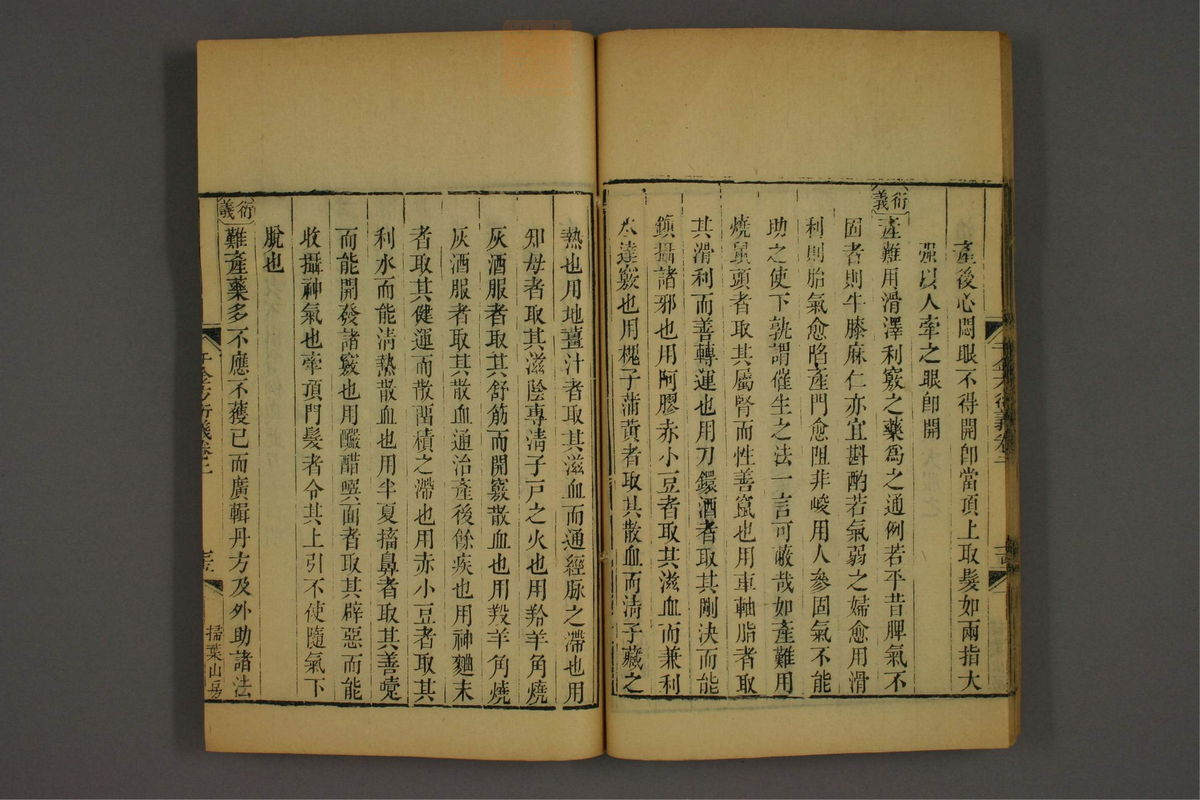 產後心悶眼不得開卽當頂上取髮如兩指大
强以人牽之眼卽開
衍義
產難用滑澤利竅之藥爲之通例若平昔脾氣不
固者則牛膝麻仁亦宜斟酌若氣弱之婦愈用滑
利則胎氣愈陷產門愈阻非峻用人參固氣不能
助之使下孰謂催生之法一言可蔽哉如產難用
燒鼠頭者取其屬腎而性善竄也用車軸脂者取
其滑利而善轉運也用刀鐶酒者取其剛決而能
鎮攝諸邪也用阿膠赤小豆者取其滋血而兼利
水達竅也用槐子蒲黃者取其散血而淸子藏之
熱也用地薑汁者取其滋血而通經脉之滯也用
知母者取其滋陰專淸子戸之火也用羚羊角燒
灰酒服者取其舒筋而開竅散血也用羖羊角燒
灰酒服者取其散血通治產後餘疾也用神麯末
者取其健運而散舊積之滯也用赤小豆者取其
利水而能淸熱散血也用半夏搐鼻者取其善嚏
而能開發諸竅也用釅醋噀面者取其辟惡而能
收攝神氣也牽頂門髮者令其上引不使隨氣下
脫也
衍義
難產藥多不應不獲已而廣輯丹方及外助諸法
千金方衍義卷二
掃葉山房